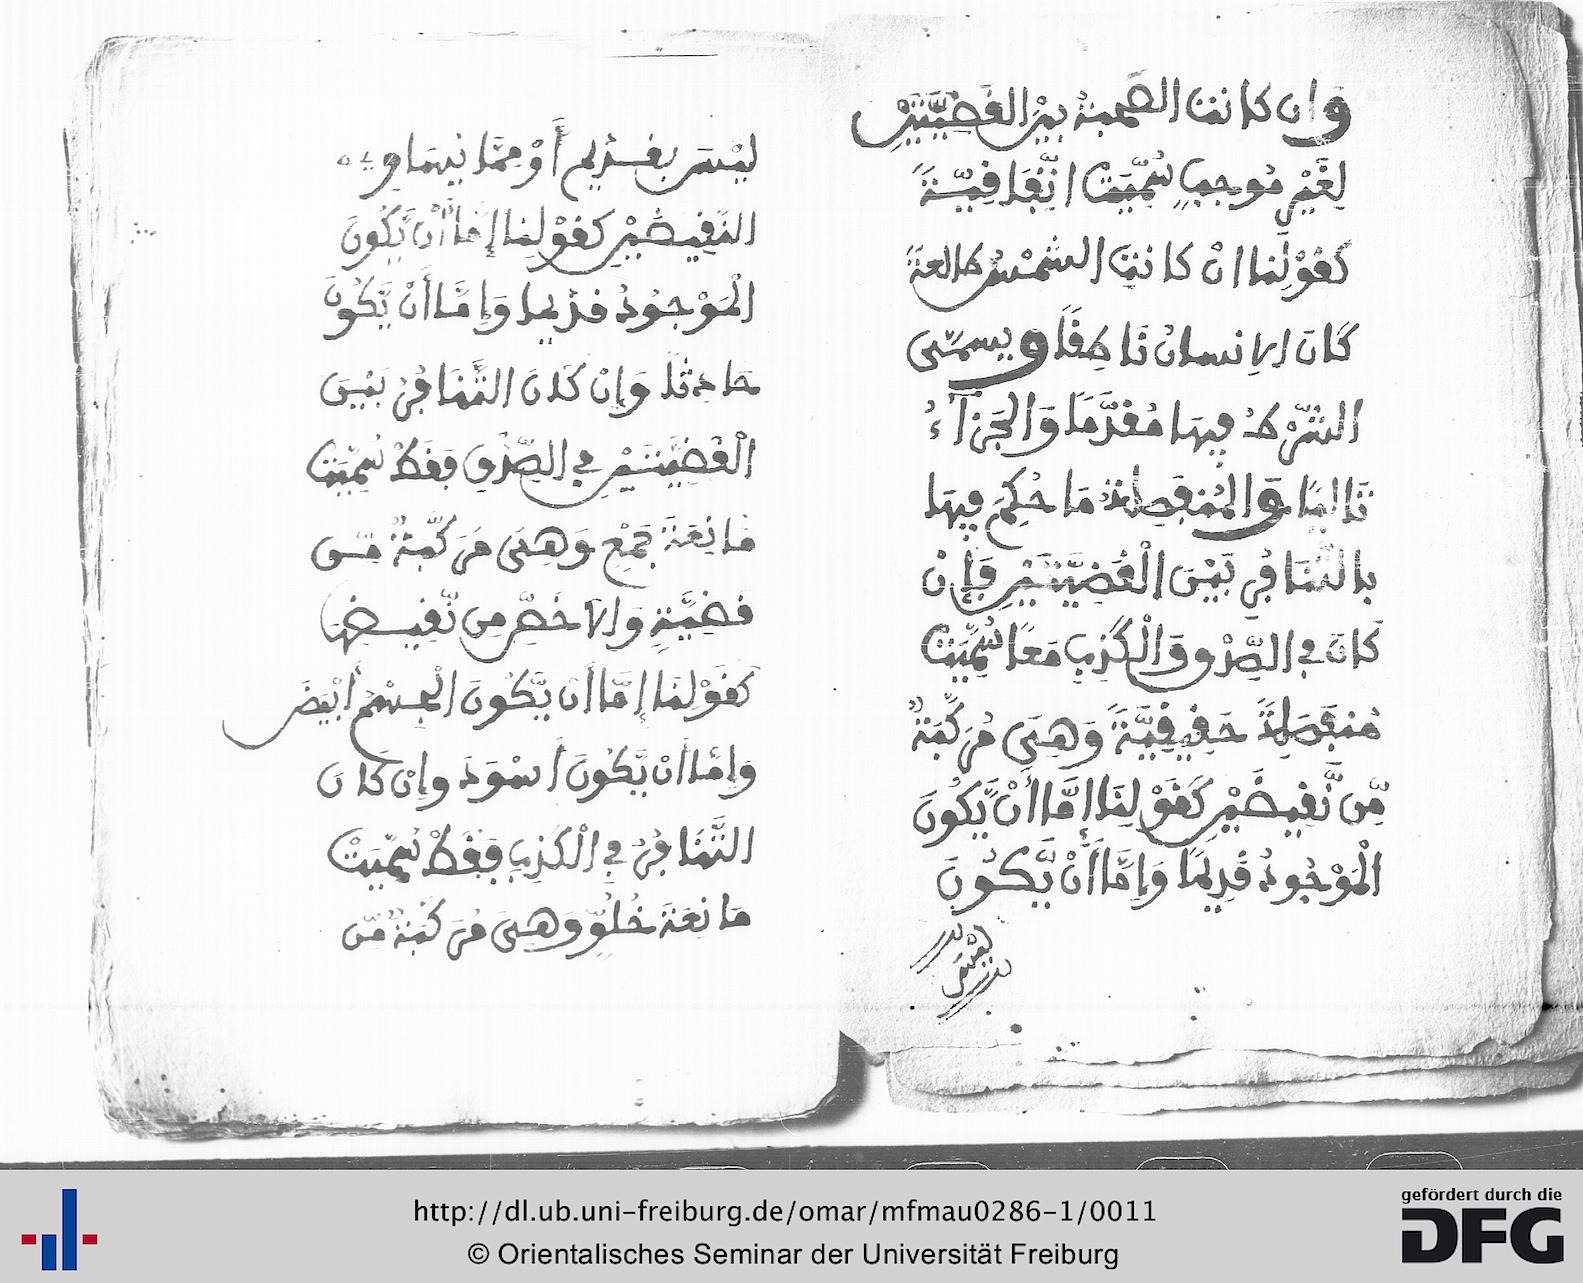 وان كانت الصحبة بين القضيتين
لِغَيْرِ مُوجبٍ سُمِّيَتْ اتِّفَاقِيَّةً
كقوْلِنا انْ كانتِ الشمْسُ طالعةً
كَانَ الإنسانُ نَاطِقًا ويسمّى
الشّرْطُ فِيهَا مُقدَّمًا وَالجَزآءُ
تَالِيًا والمُنفَصِلةُ مَا حُكِمَ فِيهَا
بالتَّنَافِي بَيْنَ الْقَضِيَّتَيْنِ فَإِنْ
كَانَ فِي الصِّدْقِ وَالْكَذِبِ مَعًا سُمِّيَتْ
مُنفَصِلَةً حَقِيقِيَّةً وَهِيَ مُرَكَّبَةٌ
مِّن نَّقِيضَيْنِ كَقَوْلِنَا إِمَّا أَنْ يَّكُونَ
الْمَوْجُودُ قَدِيمًا وَإِمَّا أَنْ يَّكُونَ
ليْسَ
لَيْسَ بِقَدِيمٍ أَوْ مِمَّا يُسَاوِي
النَّقِيضَيْنِ كقوْلِنا إِمَّا أَنْ يَّكُونَ
الْمَوْجُودُ قَدِيمًا وَإِمَّا أَنْ يَّكُونَ
حَادِثًا وَإِنْ كَانَ التَّنَافِي بَيْنَ
الْقَضِيَّتَيْنِ فِي الصِّدْقِ فَقَطْ سُمِّيَتْ
مَانِعَةَ جَمْعٍ وَهِيَ مُرَكَّبَةٌ مِّن
قَضِيَّةٍ وَالأَخَصِّ مِن نَّقِيضِهَا
كَقَوْلِنَا إِمَّا أَنْ يَّكُونَ الْجِسْمُ أَبْيَضَ
وَإِمَّا أَنْ يَّكُونَ أَسْوَدَ وَإِنْ كَانَ
التَّنَافِي فِي الْكَذِبِ فَقَطْ سُمِّيَتْ
مَانِعَةَ خُلُوٍّ وَهِيَ مُرَكَّبَةٌ مِّن
http://dl.ub.uni-freiburg.de/omar/mfmau0286-1/0011
© Orientalisches Seminar der Universität Freiburg
gefördert durch die
DFG